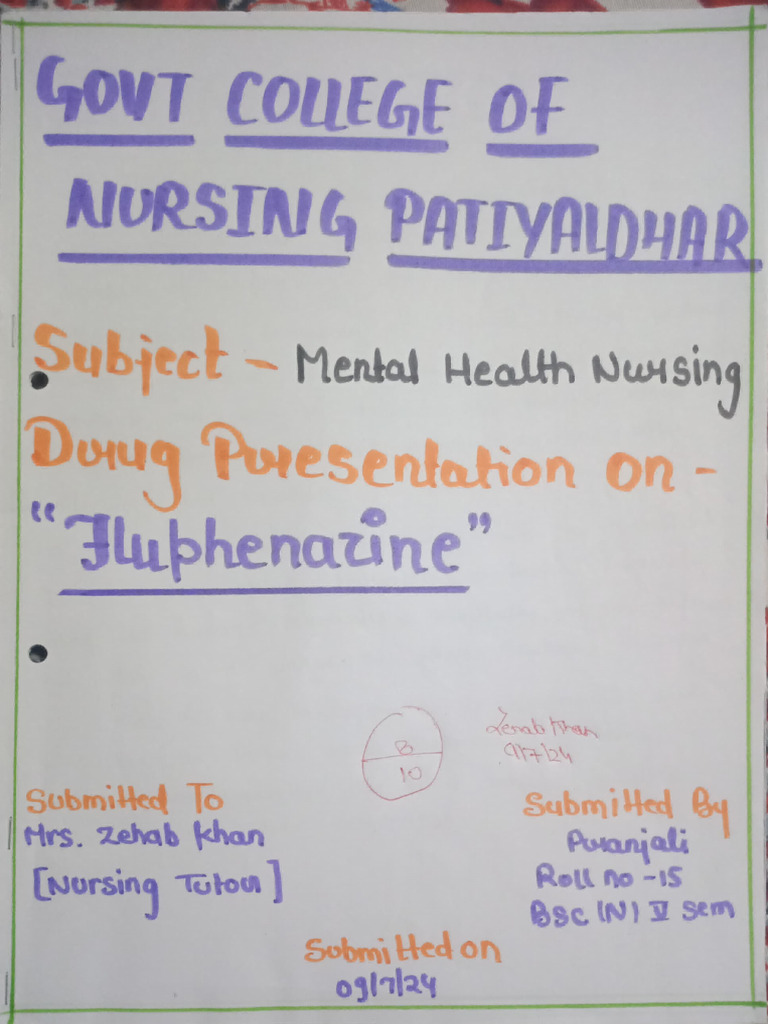 GOVT COLLEGE OF
NURSING PATIYALDHAR
Subject - Mental Health Nursing
Drug Presentation on -
"Fluphenazine"
8
10
Zehab Khan
9/7/24
Submitted To
Mrs. Zehab Khan
[Nursing Tutor]
Submitted By
Pranjali
Roll no - 15
BSC (N) V sem
Submitted on
09/7/24